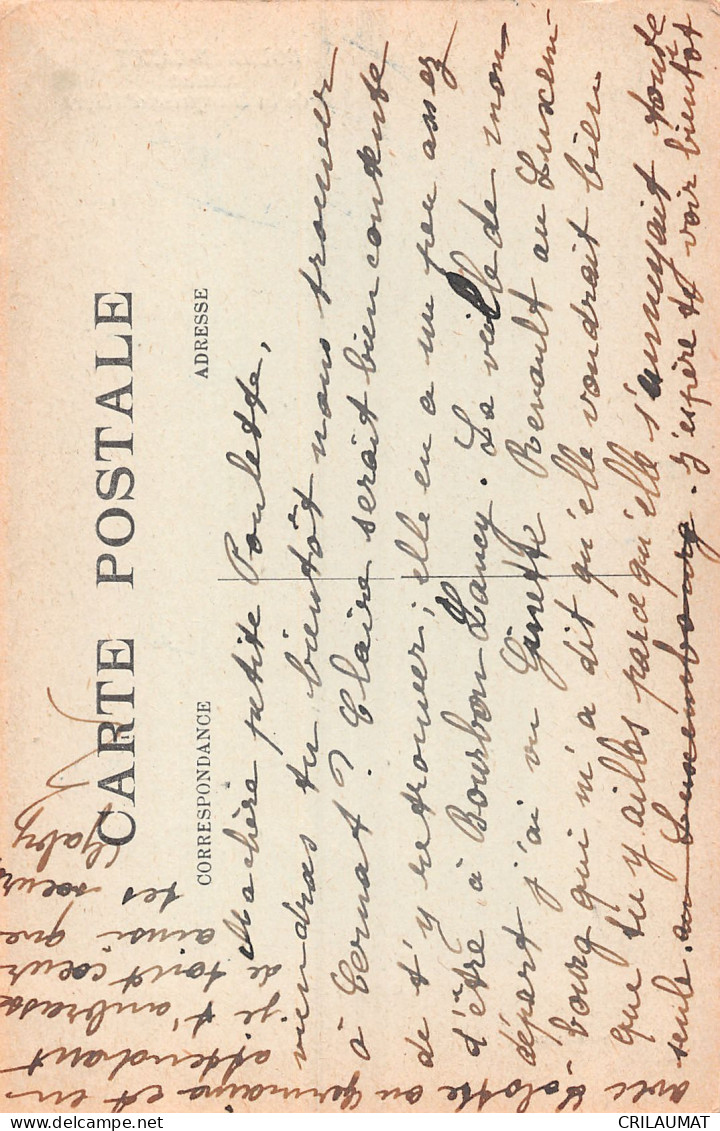 CARTE POSTALE
CORRESPONDANCE
ADRESSE
Ma chère petite Poulette,
viendras tu bientôt nous trouver
à Cernat ? Claire serait bien contente
de t'y retrouver ; elle en a un peu assez
d'être à Bourbon Lancy. La veille de mon
départ j'ai vu Ginette Renault au Luxem
bourg qui m'a dit qu'elle voudrait bien
que tu y ailles parce qu'elle s'ennuyait toute
seule au Luxembourg. J'espère te voir bientôt
avec Lolotte ou Germaine et en
attendant
je t'embrasse
de tout cœur
ainsi que
tes sœurs
Gaby
CRILAUMAT